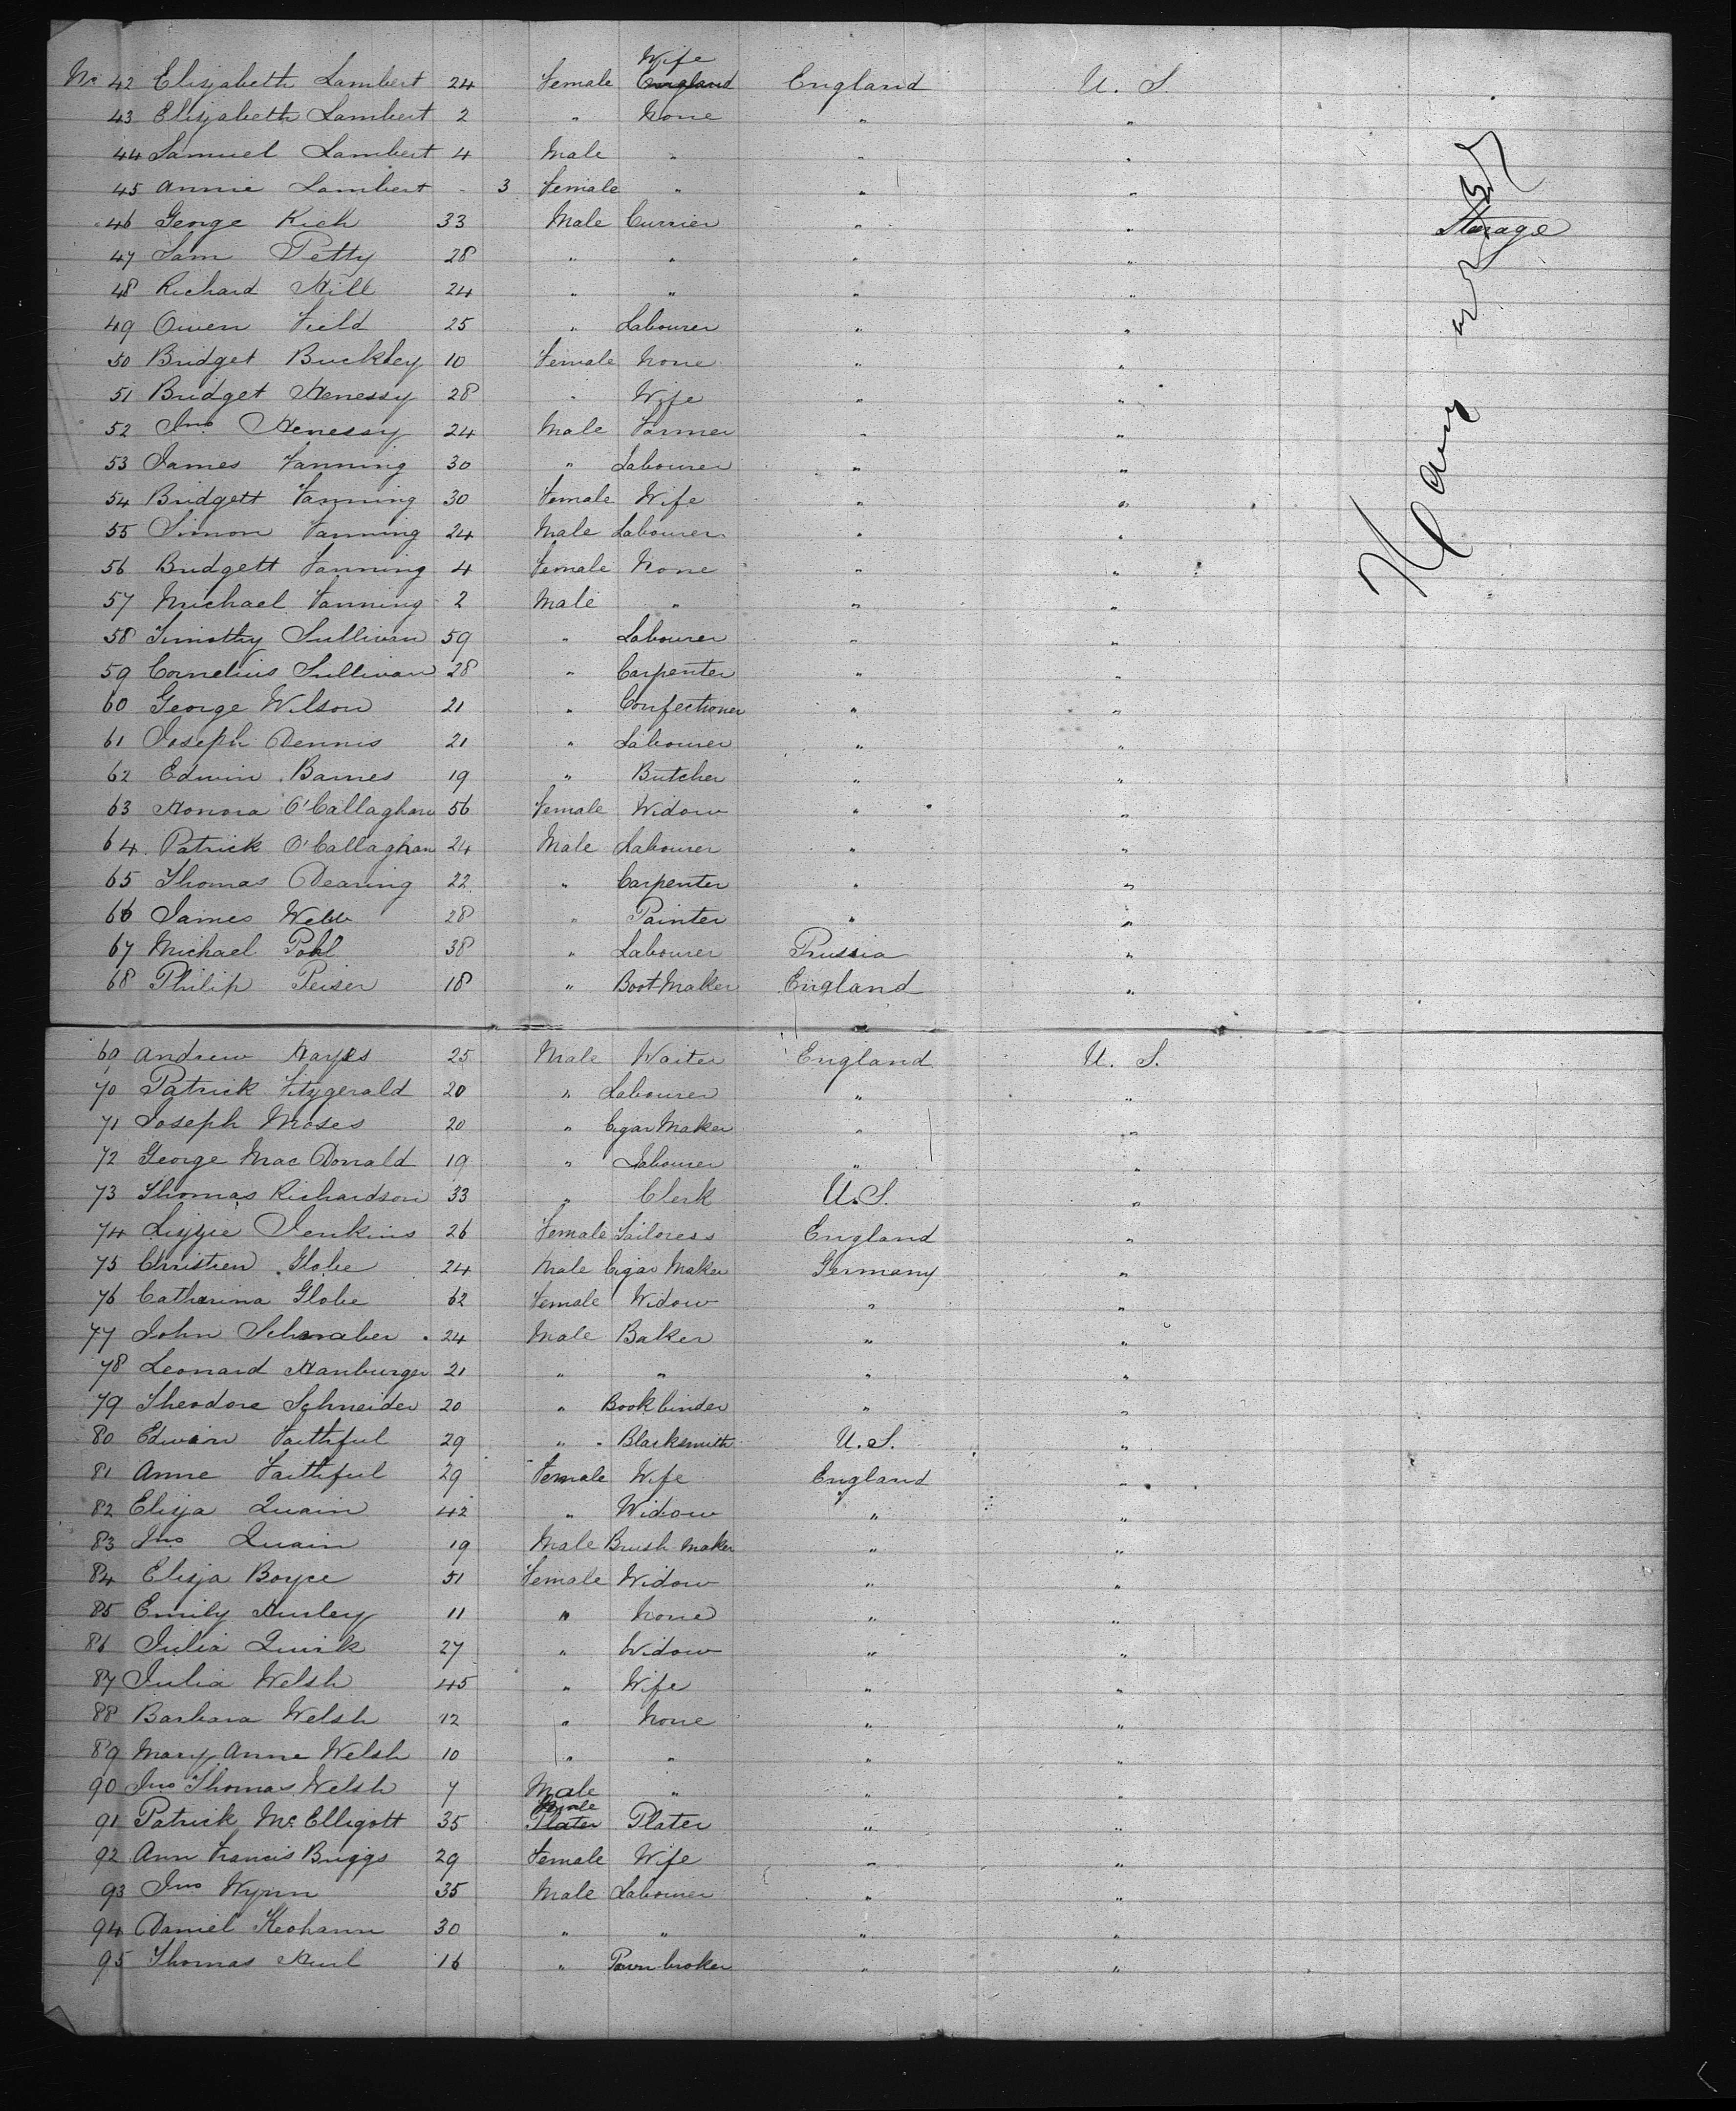 No 42 Elizabeth Lambert 24 Female Wife England England U. S.
43 Elizabeth Lambert 2 " None " "
44 Samuel Lambert 4 Male " " "
45 Annie Lambert - 3 Female " " "
46 George Rich 33 Male Currier " " Storage
47 Sam Petty 28 " " " "
48 Richard Hill 24 " " " "
49 Owen Field 25 " Labourer " "
50 Bridget Buckley 10 Female None " "
51 Bridget Henessy 28 " Wife " "
52 Jno Henessy 24 Male Farmer " "
53 James Fanning 30 " Labourer " "
54 Bridgett Fanning 30 Female Wife " "
55 Simon Fanning 24 Male Labourer " "
56 Bridgett Fanning 4 Female None " "
57 Michael Fanning 2 Male " " "
58 Timothy Sullivan 59 " Labourer " "
59 Cornelius Sullivan 28 " Carpenter " "
60 George Wilson 21 " Confectioner " "
61 Joseph Dennis 21 " Labourer " "
62 Edwin Barnes 19 " Butcher " "
63 Honora O'Callaghan 56 Female Widow " "
64 Patrick O'Callaghan 24 Male Labourer " "
65 Thomas Dearing 22 " Carpenter " "
66 James Webb 28 " Painter " "
67 Michael Pohl 38 " Labourer Prussia "
68 Philip Peiser 18 " Boot Maker England "
69 Andrew Hayes 25 Male Waiter England U. S.
70 Patrick Fitzgerald 20 " Labourer " "
71 Joseph Moses 20 " Cigar Maker " "
72 George Mac Donald 19 " Labourer " "
73 Thomas Richardson 33 " Clerk U. S. "
74 Lizzie Jenkins 26 Female Tailoress England "
75 Christien Globe 24 Male Cigar Maker Germany "
76 Catharina Globe 62 Female Widow " "
77 John Schwaber 24 Male Baker " "
78 Leonard Hamburger 21 " " " "
79 Theodore Schneider 20 " Bookbinder " "
80 Edwin Faithful 29 " Blacksmith U. S. "
81 Anne Faithful 29 Female Wife England "
82 Eliza Quain 42 " Widow " "
83 Jno Quain 19 Male Brush Maker " "
84 Eliza Boyce 51 Female Widow " "
85 Emily Hurley 11 " None " "
86 Julia Quirk 27 " Widow " "
87 Julia Welsh 45 " Wife " "
88 Barbara Welsh 12 " None " "
89 Mary Anne Welsh 10 " " " "
90 Jno Thomas Welsh 7 Male " " "
91 Patrick McElligott 35 Male Plater Plater " "
92 Ann Francis Briggs 29 Female Wife " "
93 Jno Wynn 35 Male Labourer " "
94 Daniel Keohann 30 " " " "
95 Thomas Hurl 16 " Pawnbroker " "